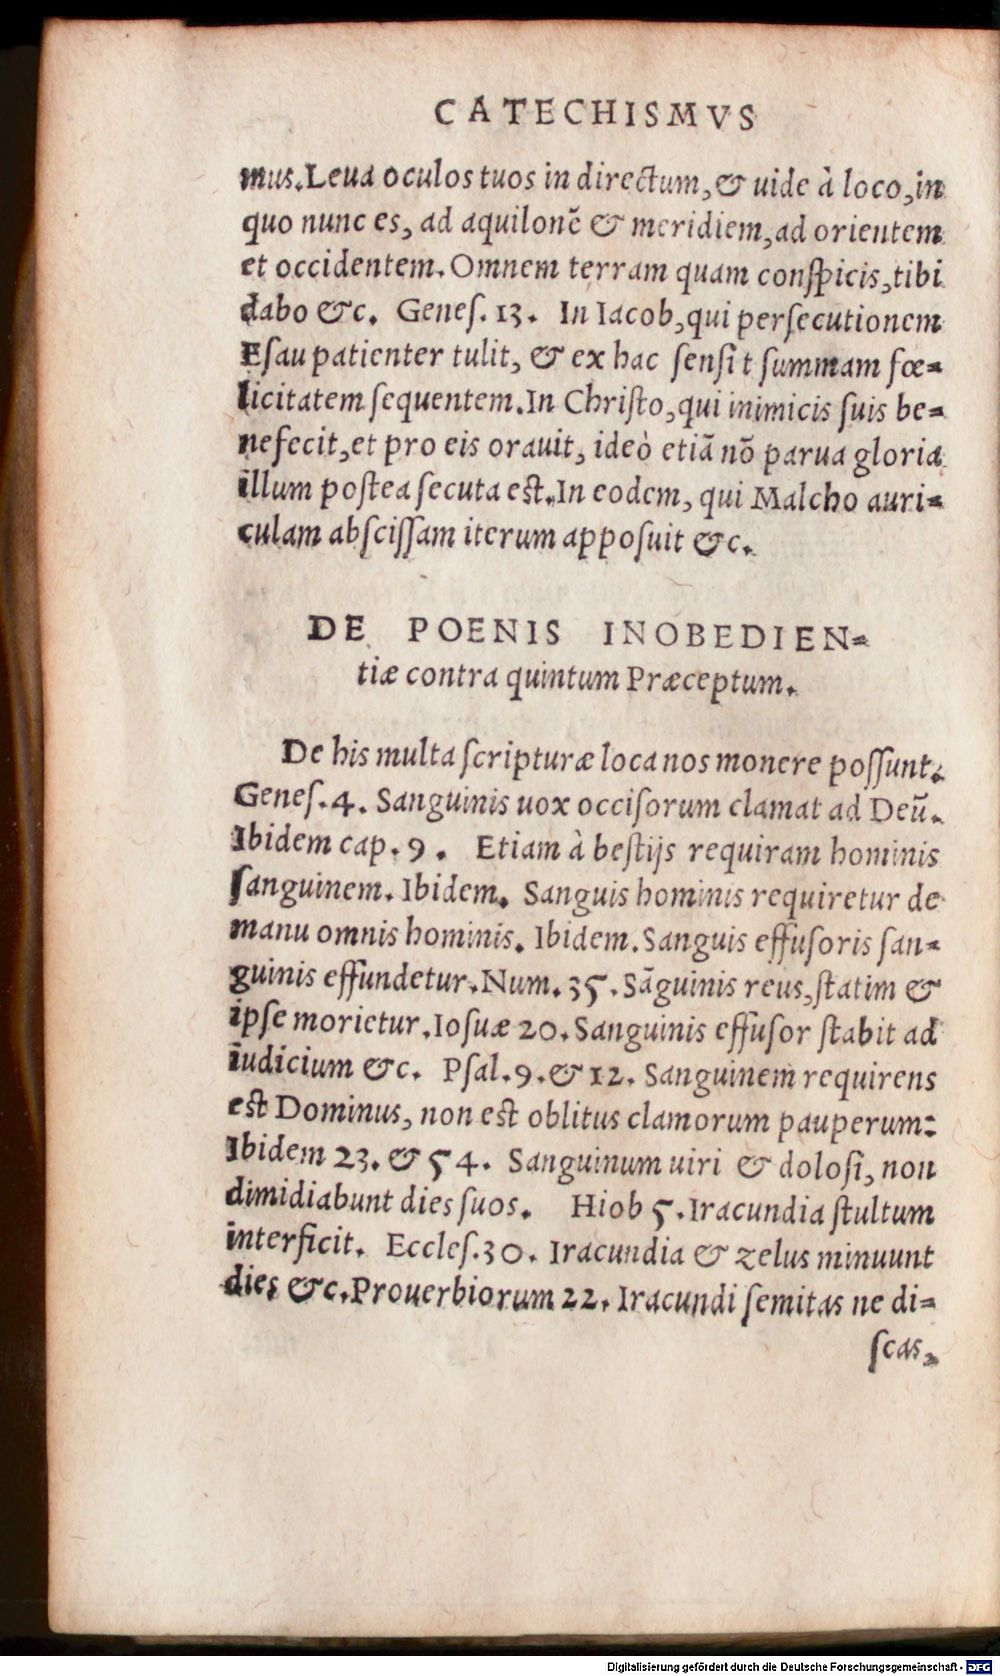 CATECHISMVS
mus. Leua oculos tuos in directum, & uide à loco, in
quo nunc es, ad aquilonē & meridiem, ad orientem
et occidentem. Omnem terram quam conſpicis, tibi
dabo &c. Geneſ. 13. In Iacob, qui perſecutionem
Eſau patienter tulit, & ex hac ſenſit ſummam fœ-
licitatem ſequentem. In Chriſto, qui inimicis ſuis be-
nefecit, et pro eis orauit, ideò etiā nō parua gloria
illum poſtea ſecuta eſt. In eodem, qui Malcho auri-
culam abſciſſam iterum appoſuit &c.
DE POENIS INOBEDIEN-
tiæ contra quintum Præceptum.
De his multa ſcripturæ loca nos monere poſſunt.
Geneſ. 4. Sanguinis uox occiſorum clamat ad Deū.
Ibidem cap. 9. Etiam à beſtijs requiram hominis
ſanguinem. Ibidem. Sanguis hominis requiretur de
manu omnis hominis. Ibidem. Sanguis effuſoris ſan-
guinis effundetur. Num. 35. Sāguinis reus, ſtatim &
ipſe morietur. Ioſuæ 20. Sanguinis effuſor ſtabit ad
iudicium &c. Pſal. 9. & 12. Sanguinem requirens
eſt Dominus, non eſt oblitus clamorum pauperum:
Ibidem 23. & 54. Sanguinum uiri & doloſi, non
dimidiabunt dies ſuos. Hiob 5. Iracundia ſtultum
interficit. Eccleſ. 30. Iracundia & zelus minuunt
dies &c. Prouerbiorum 22. Iracundi ſemitas ne di-
ſcas,
Digitalisierung gefördert durch die Deutsche Forschungsgemeinschaft - DFG